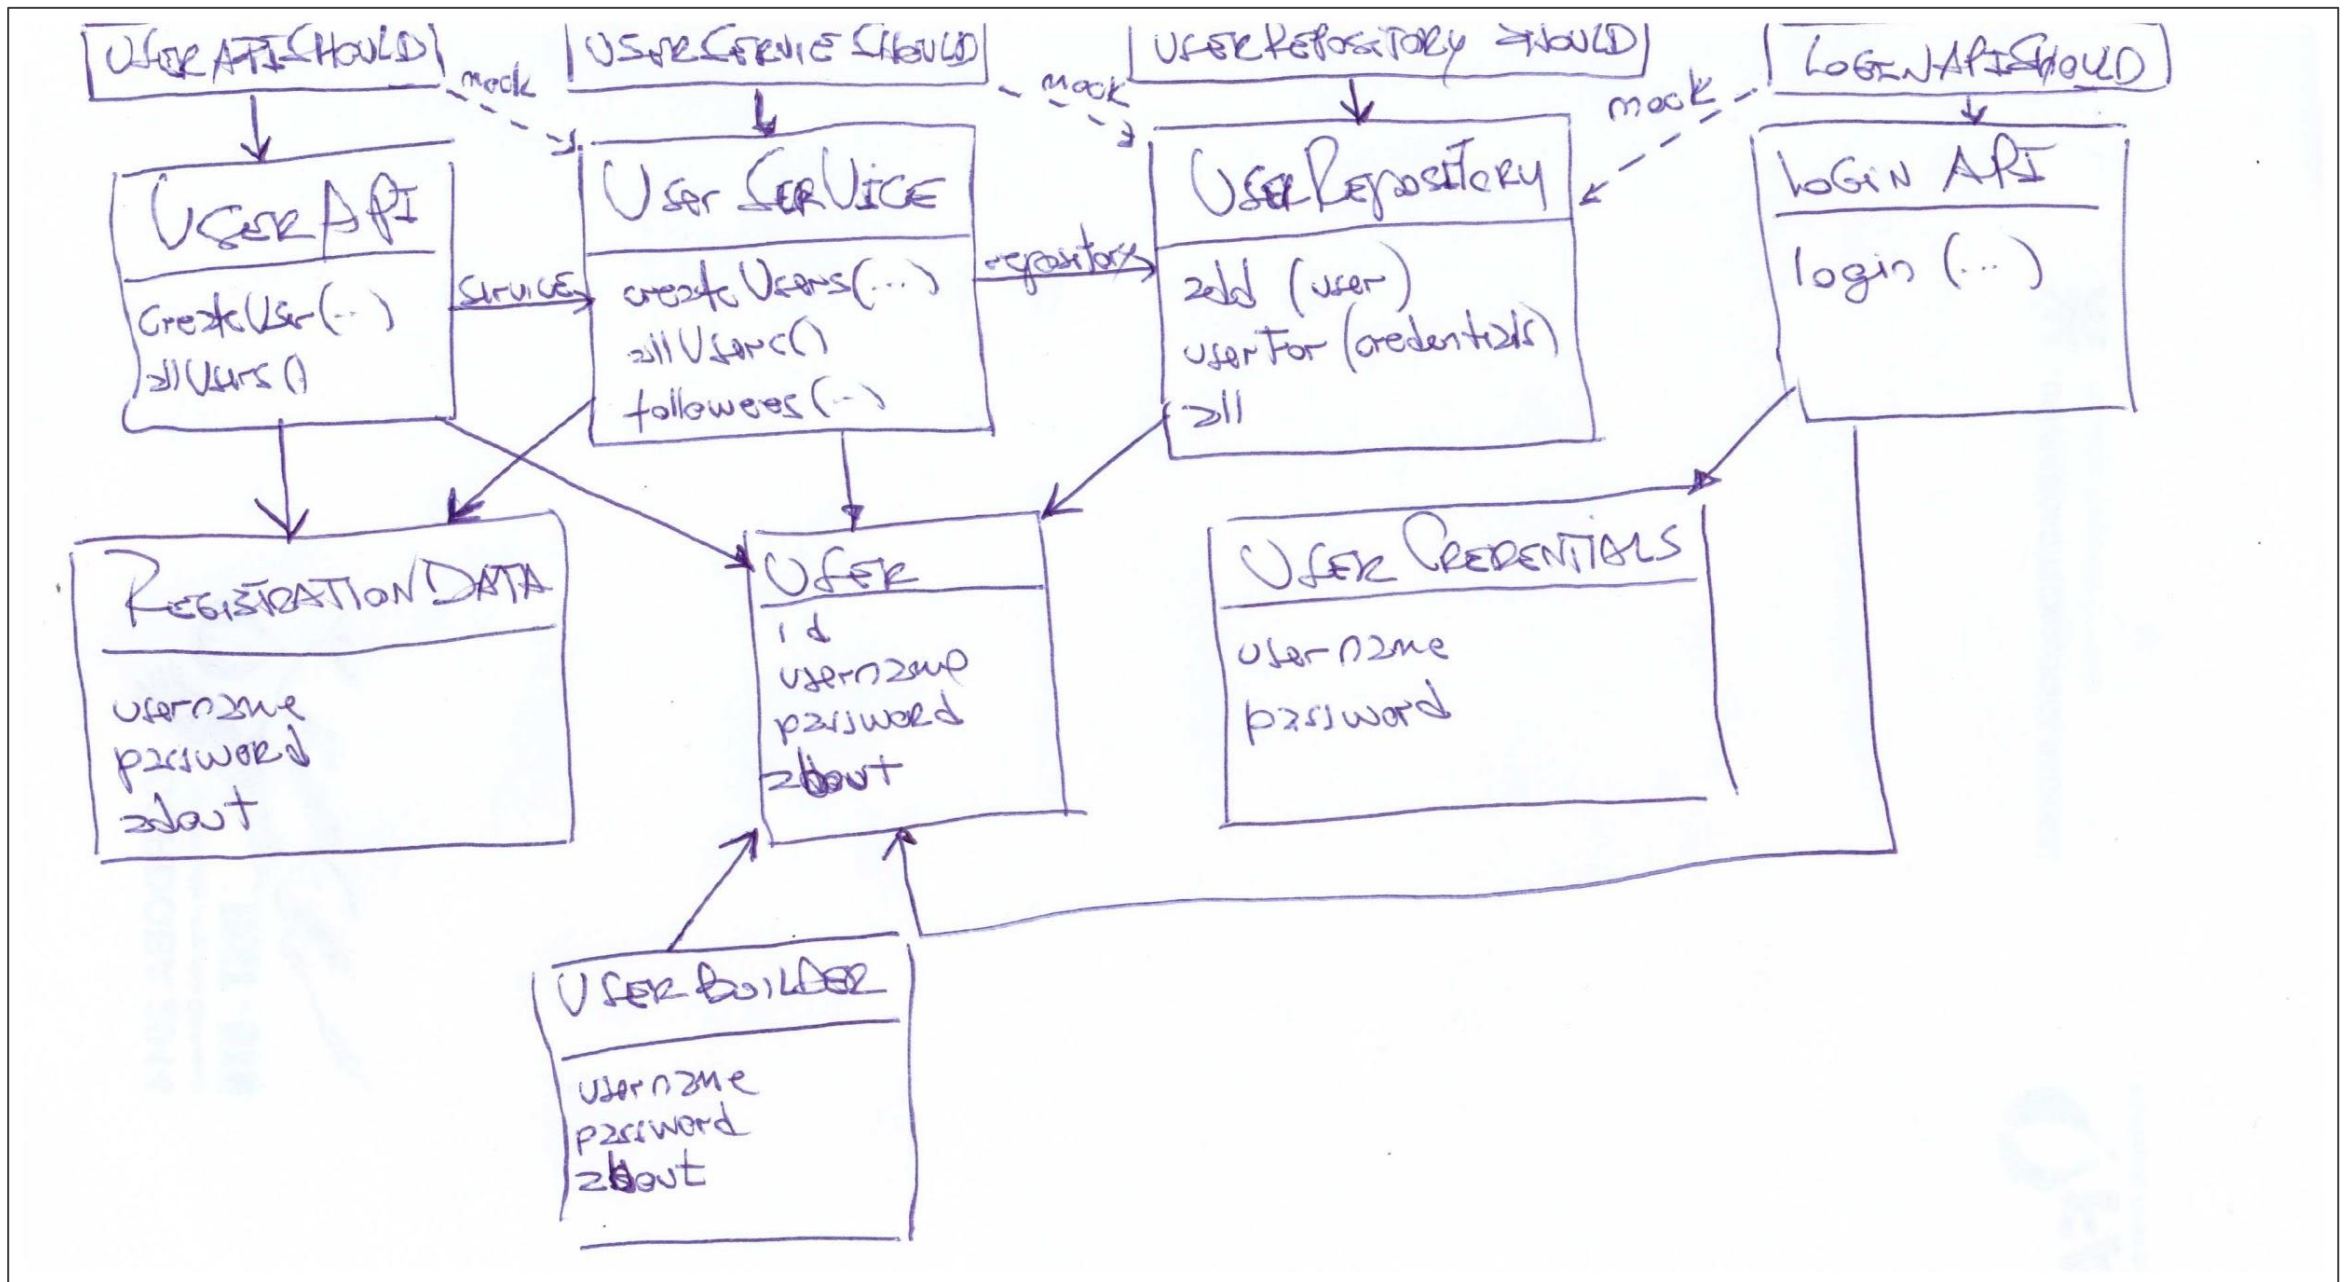 USERAPISHOULD
USERSERVIESHOULD
USERREPOSITORY SHOULD
LOGINAPISHOULD
mock
mock
mock
USERAPI
CreateUser(...)
allUsers()
service
User SERVICE
createUsers(...)
allUsers()
followees(...)
repository
USERREPOSITORY
add (user)
userFor (credentials)
all
LOGIN API
login (...)
REGISTRATION DATA
username
password
about
USER
id
username
password
about
USER CREDENTIALS
username
password
USER BUILDER
username
password
about